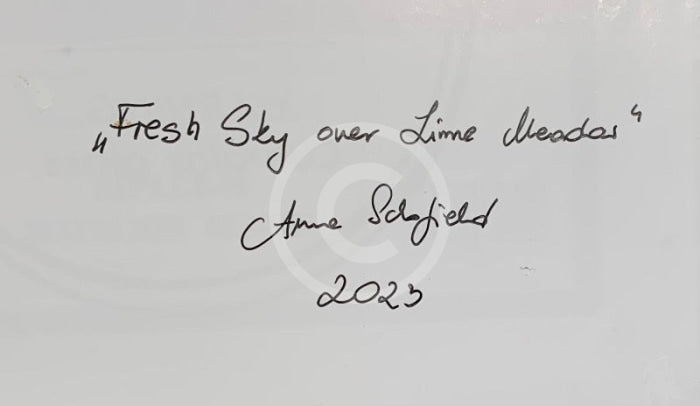 „Fresh Sky over Lime Meadow“
Anne Schofield
2023